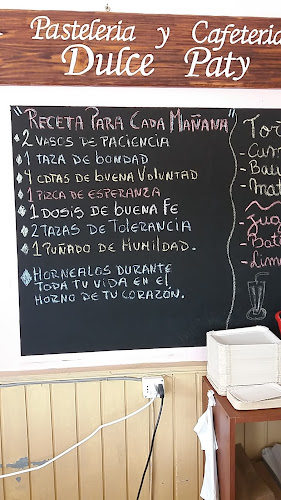 Pasteleria y Cafeteria
Dulce Paty
"RECETA PARA CADA MAÑANA"
2 VASOS DE PACIENCIA
1 TAZA DE BONDAD
4 CDTAS DE BUENA VOLUNTAD
1 PIZCA DE ESPERANZA
1 DOSIS DE BUENA FE
2 TAZAS DE TOLERANCIA
1 PUÑADO DE HUMILDAD.
HORNEALOS DURANTE
TODA TU VIDA EN EL
HORNO DE TU CORAZÓN.